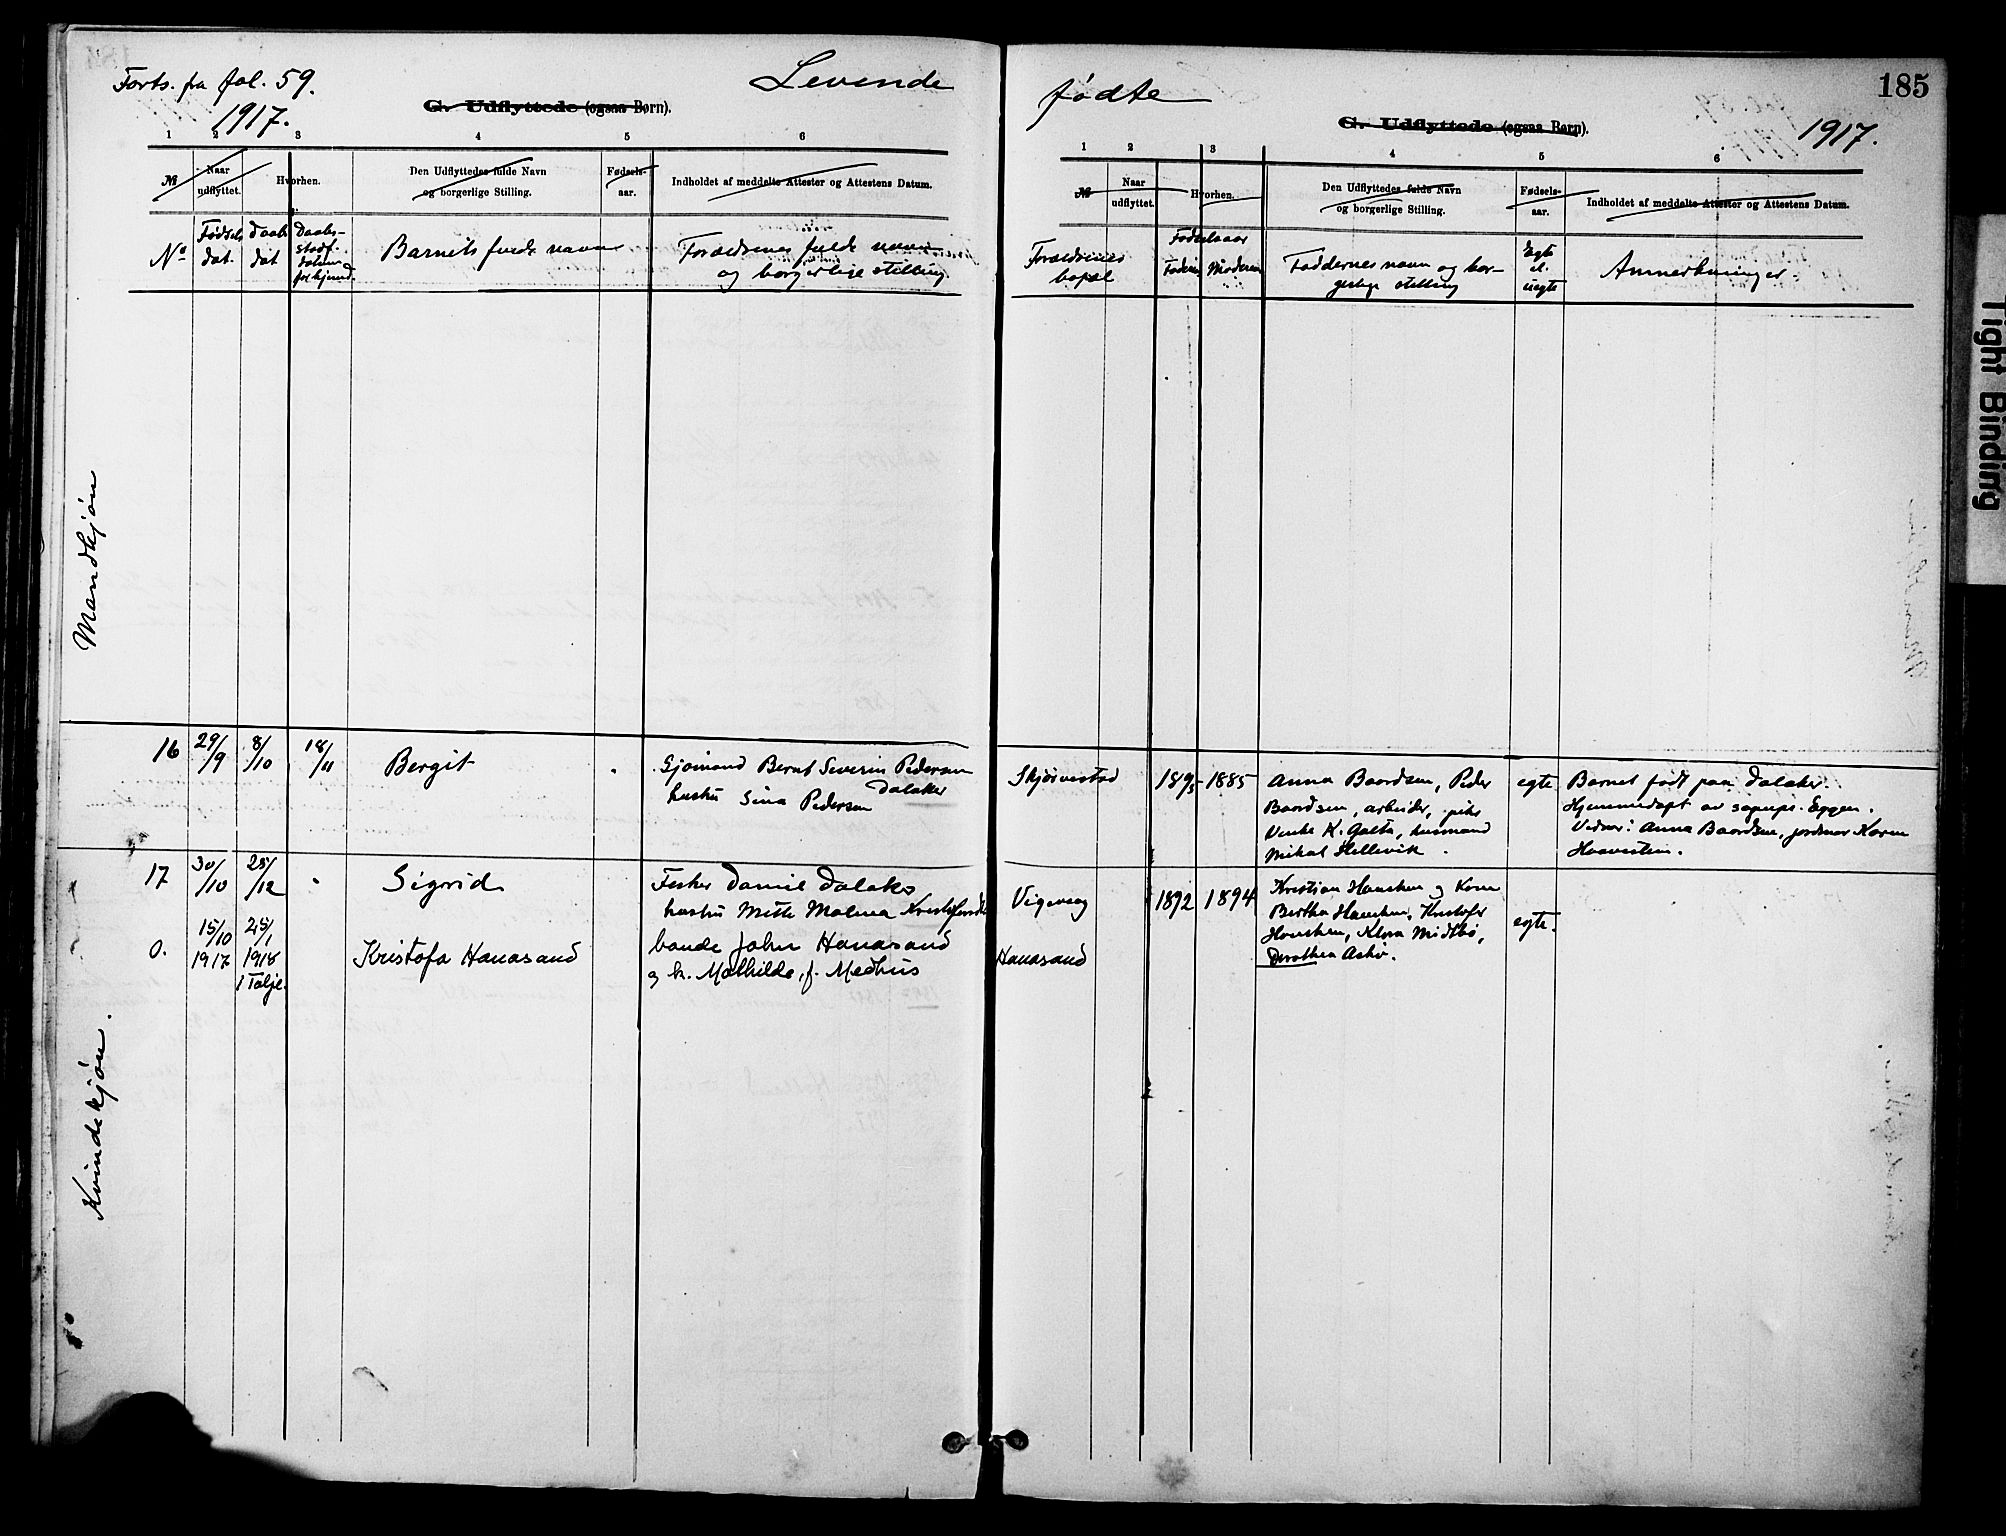 Forts. fra fol. 59.
1917.
Levende
G. Udflyttede (ogsaa Børn).
1 2 3 4 5 6
№
Naar
udflyttet.
Hvorhen.
Den Udflyttedes fulde Navn
og borgerlige Stilling.
Fødsels-
aar.
Indholdet af meddelte Attester og Attestens Datum.
No
Fødsels
dat.
Daabs
dat
Daabs-
stadf.
datum
for hjemd.
Barnets fulde navn
Forældrenes fulde navn
og borgerlige stilling.
Mandkjøn
16
29/9
8/10
18/11
Bergit
Sjømand Bernt Severin Pedersen
Dalaker
hustru Sina Pedersen
17
30/10
28/12
Sigrid
Fisker Daniel Dalaker
hustru Mette Malena
0.
15/10
1917
25/1
1918
i Talje.
Kristofa Hanasand
bonde John Hanasand
og h. Mathilde, f. Medhus
Kvindekjøn.
fødte
185
1917.
G. Udflyttede (ogsaa Børn).
1 2 3 4 5 6
№
Naar
udflyttet.
Hvorhen.
Den Udflyttedes fulde Navn
og borgerlige Stilling.
Fødsels-
aar.
Indholdet af meddelte Attester og Attestens Datum.
Forældrenes
bopæl
Fødselsaar
Faderen
Moderen
Faddernes navn og bor-
gerlige stilling
Egte
el.
uegte
Anmerkninger.
1895
1885
Anna Baardsen, Peder
Baardsen, arbeider, pike
K. Galta, husmand
Mikal Hellevik.
egte
Barnet født paa Dalaker.
Hjemmedøpt av sognepr. Eggen.
Vidner: Anna Baardsen, jordmor Karen
Vigevaag
1892
1894
Kristian Hausken og Kone
Bertha Hausken, Kristofer
Hausken, Klara Midtbø,
Dorothea Askø.
egte.
Hanasand
Tight Binding